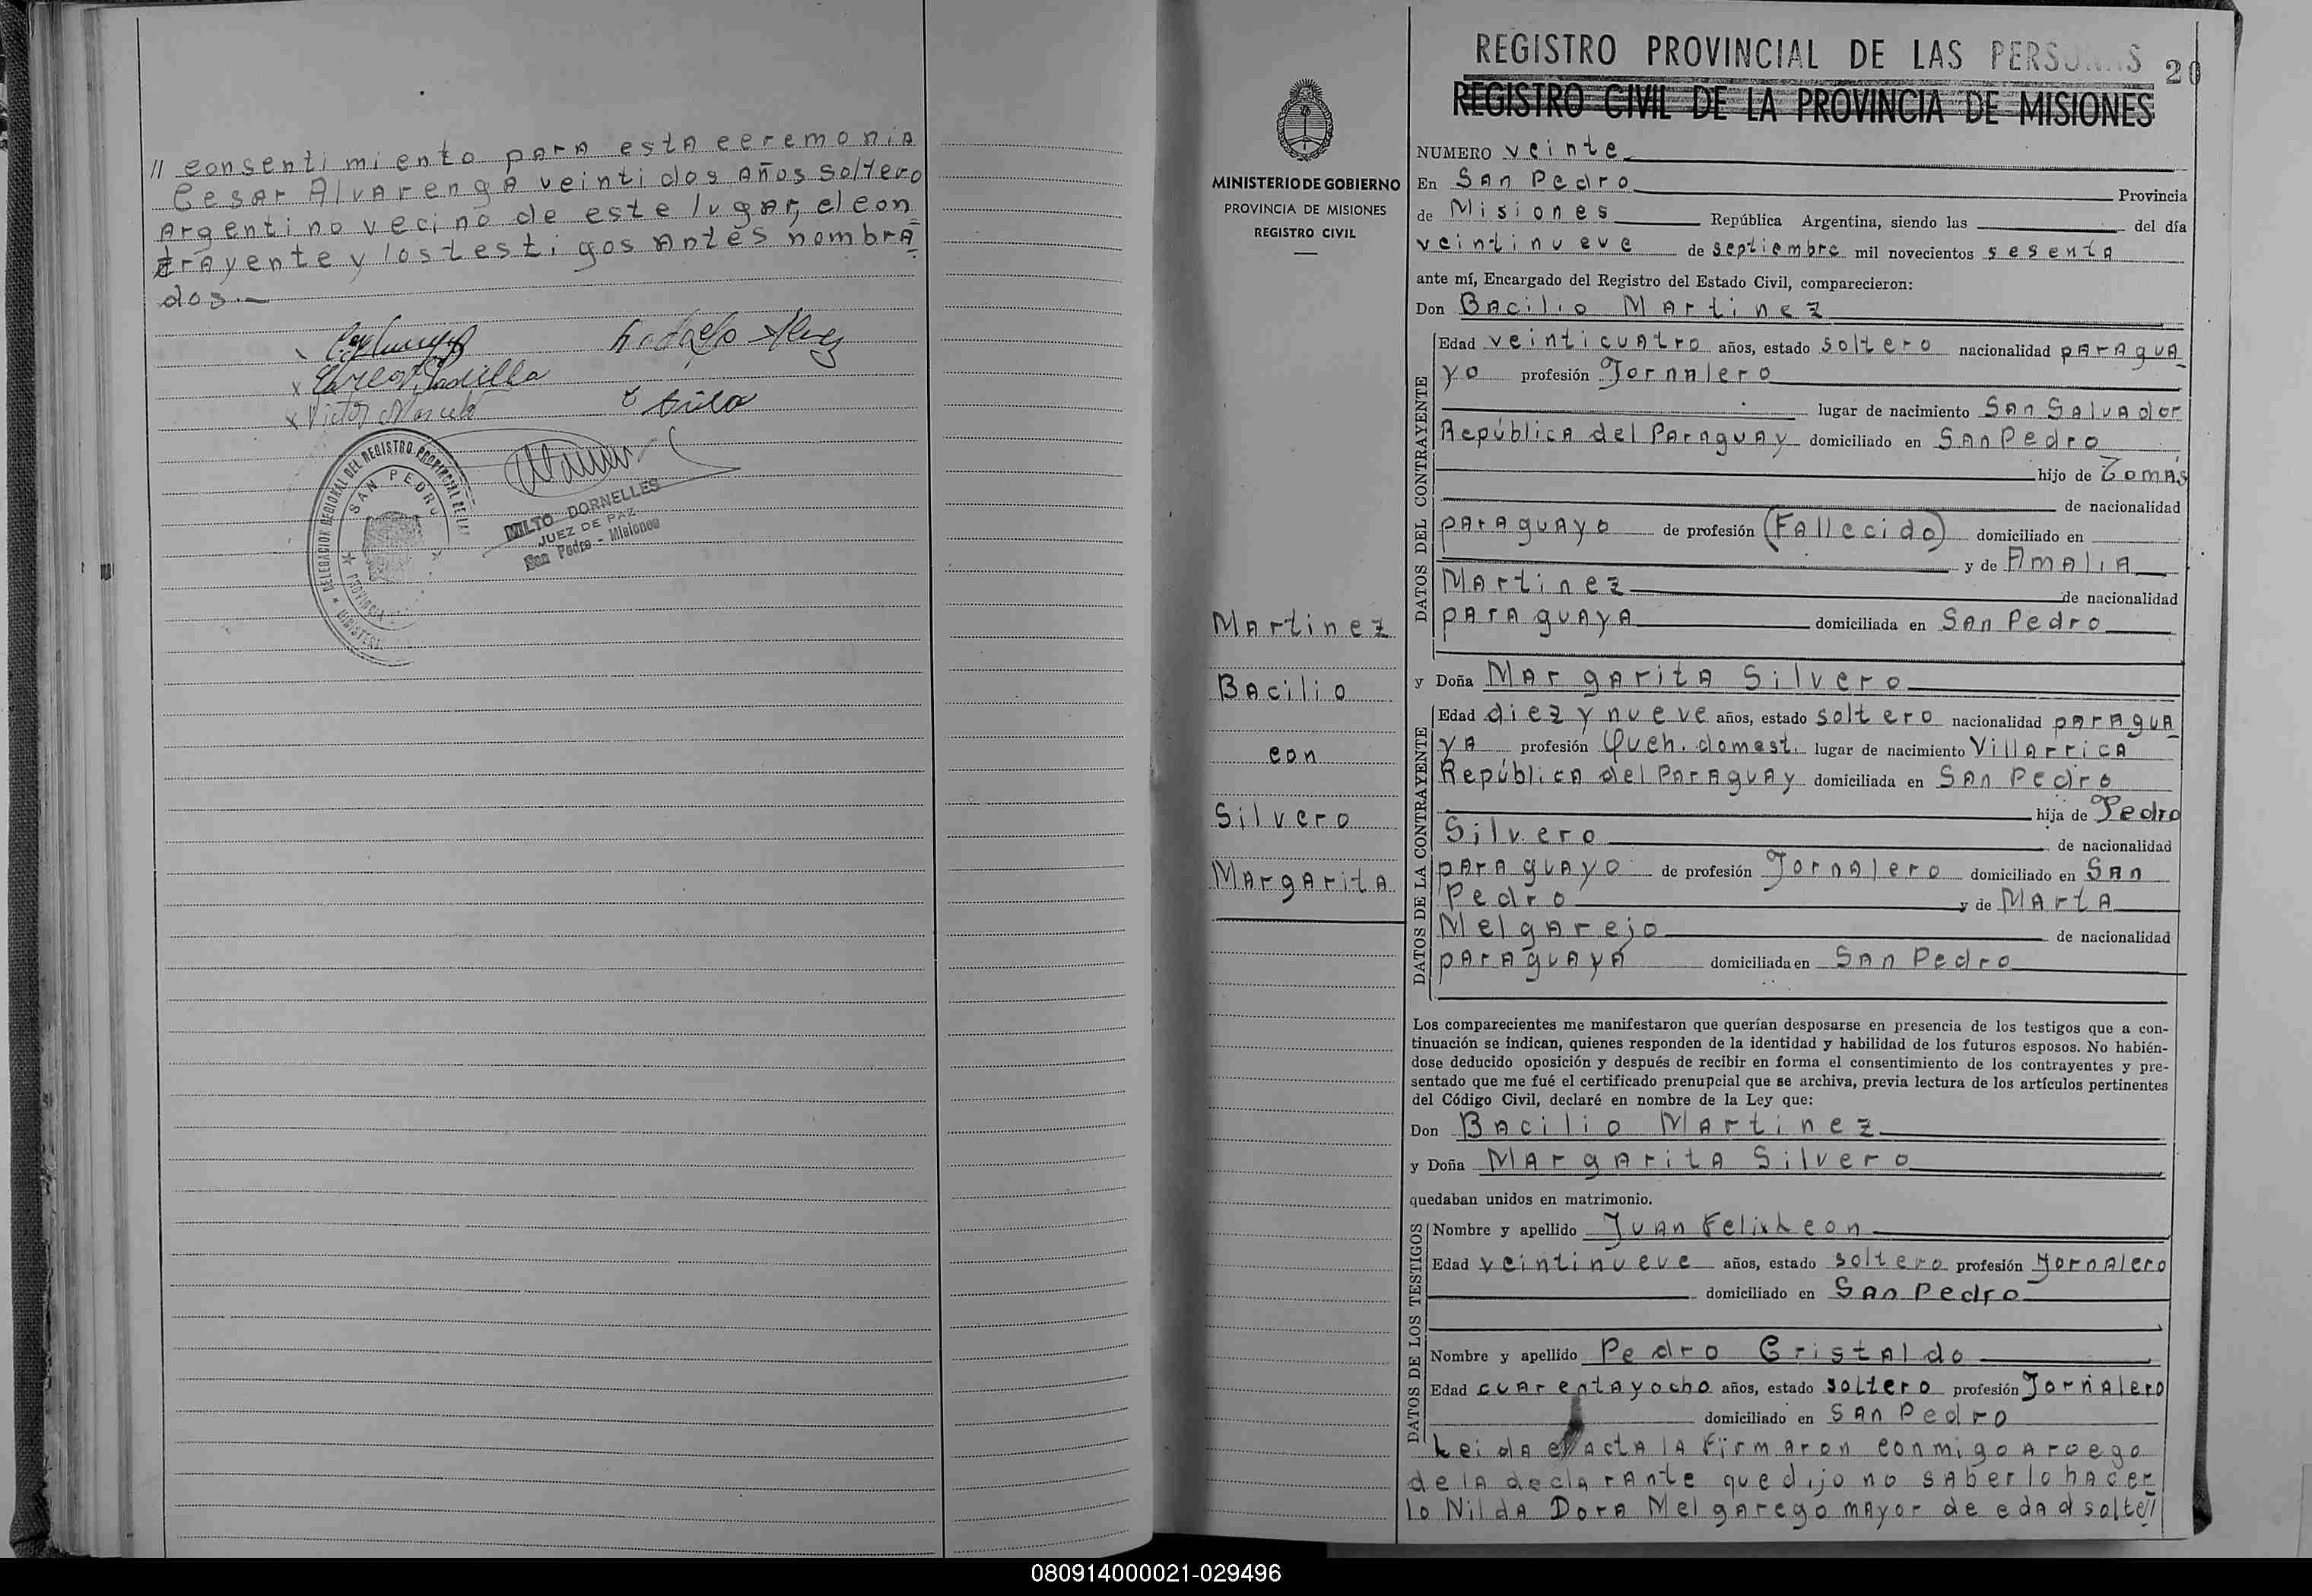 // consentimiento para esta ceremonia
Cesar Alvarenga veintidos años soltero
Argentino vecino de este lugar, el con
trayente y los testigos antes nombra
dos.—
Carlos Padilla
MILTO DORNELLES
JUEZ DE PAZ
San Pedro - Misiones
DELEGACION REGIONAL DEL REGISTRO PROVINCIAL DE LAS
SAN PEDRO
MINISTERIODE GOBIERNO
PROVINCIA DE MISIONES
REGISTRO CIVIL
Martinez
Bacilio
con
Silvero
Margarita
REGISTRO PROVINCIAL DE LAS PERSONAS
20
REGISTRO CIVIL DE LA PROVINCIA DE MISIONES
NUMERO veinte
En San Pedro Provincia
de Misiones República Argentina, siendo las del día
veintinueve de septiembre mil novecientos sesenta
ante mí, Encargado del Registro del Estado Civil, comparecieron:
Don Bacilio Martinez
DATOS DEL CONTRAYENTE
Edad veinticuatro años, estado soltero nacionalidad paragua
yo profesión Jornalero
lugar de nacimiento San Salvador
República del Paraguay domiciliado en San Pedro
hijo de Tomás
de nacionalidad
paraguayo de profesión (Fallecido) domiciliado en
y de Amalia
Martinez de nacionalidad
paraguaya domiciliada en San Pedro
y Doña Margarita Silvero
DATOS DE LA CONTRAYENTE
Edad diez y nueve años, estado soltero nacionalidad paragua
ya profesión Queh. domest. lugar de nacimiento Villarrica
República del Paraguay domiciliada en San Pedro
hija de Pedro
Silvero de nacionalidad
paraguayo de profesión Jornalero domiciliado en San
Pedro y de Marta
Melgarejo de nacionalidad
paraguaya domiciliada en San Pedro
Los comparecientes me manifestaron que querían desposarse en presencia de los testigos que a con-
tinuación se indican, quienes responden de la identidad y habilidad de los futuros esposos. No habién-
dose deducido oposición y después de recibir en forma el consentimiento de los contrayentes y pre-
sentado que me fué el certificado prenupcial que se archiva, previa lectura de los artículos pertinentes
del Código Civil, declaré en nombre de la Ley que:
Don Bacilio Martinez
y Doña Margarita Silvero
quedaban unidos en matrimonio.
DATOS DE LOS TESTIGOS
Nombre y apellido Juan Felix Leon
Edad veintinueve años, estado soltero profesión Jornalero
domiciliado en San Pedro
Nombre y apellido Pedro Cristaldo
Edad cuarentayocho años, estado soltero profesión Jornalero
domiciliado en San Pedro
Leida el acta la firmaron conmigo a ruego
de la declarante que dijo no saberlo hacer
lo Nilda Dora Melgarego mayor de edad solte//
080914000021-029496